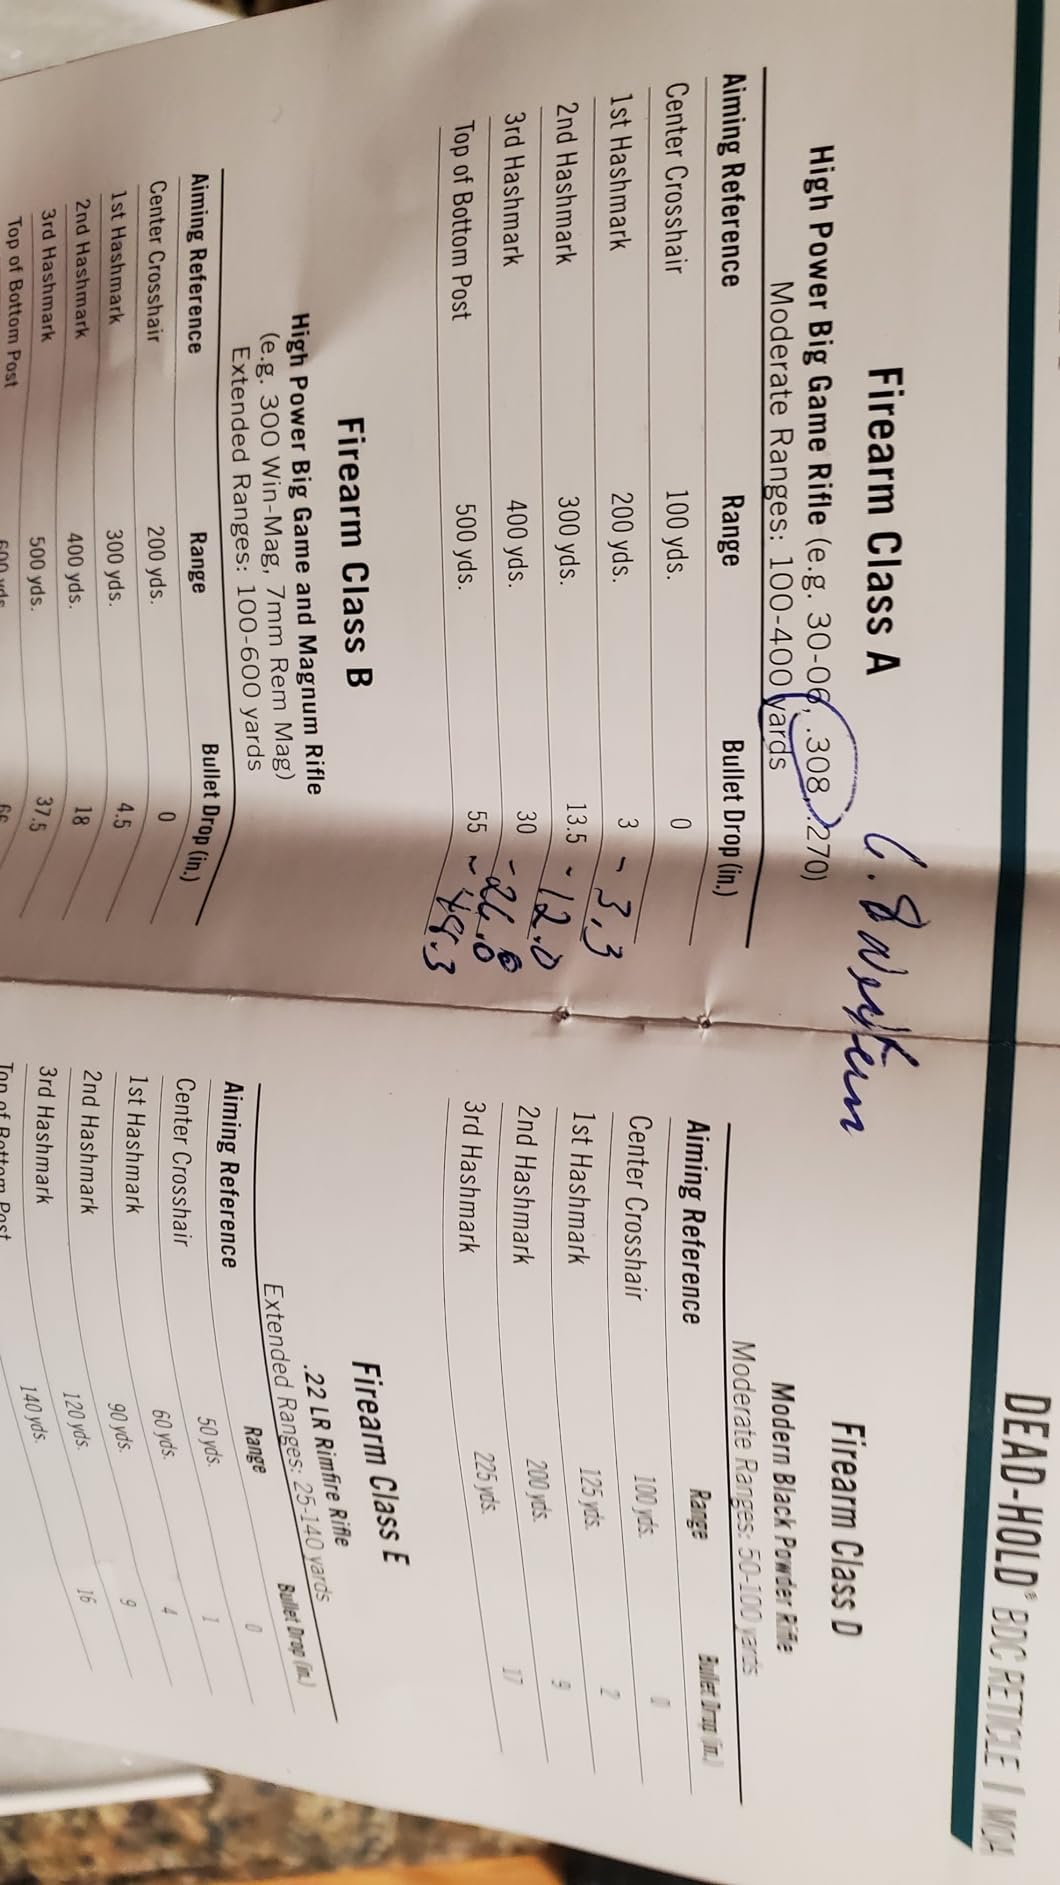 DEAD-HOLD® BDC RETICLE | MOA
Firearm Class A 6.8 Western
High Power Big Game Rifle (e.g. 30-06, .308, .270)
Moderate Ranges: 100-400 yards
Aiming Reference Range Bullet Drop (in.)
Center Crosshair 100 yds. 0
1st Hashmark 200 yds. 3 - 3.3
2nd Hashmark 300 yds. 13.5 - 12.0
3rd Hashmark 400 yds. 30 - 26.0
Top of Bottom Post 500 yds. 55 ~ 48.3
Firearm Class B
High Power Big Game and Magnum Rifle
(e.g. 300 Win-Mag, 7mm Rem Mag)
Extended Ranges: 100-600 yards
Aiming Reference Range Bullet Drop (in.)
Center Crosshair 200 yds. 0
1st Hashmark 300 yds. 4.5
2nd Hashmark 400 yds. 18
3rd Hashmark 500 yds. 37.5
Top of Bottom Post 600 yds
Firearm Class D
Modern Black Powder Rifle
Moderate Ranges: 50-100 yards
Aiming Reference Range Bullet Drop (in.)
Center Crosshair 100 yds. 0
1st Hashmark 125 yds. 2
2nd Hashmark 200 yds. 9
3rd Hashmark 225 yds. 17
Firearm Class E
.22 LR Rimfire Rifle
Extended Ranges: 25-140 yards
Aiming Reference Range Bullet Drop (in.)
Center Crosshair 50 yds. 0
1st Hashmark 60 yds. 1
2nd Hashmark 90 yds. 4
3rd Hashmark 120 yds. 9
Top of Bottom Post 140 yds. 16